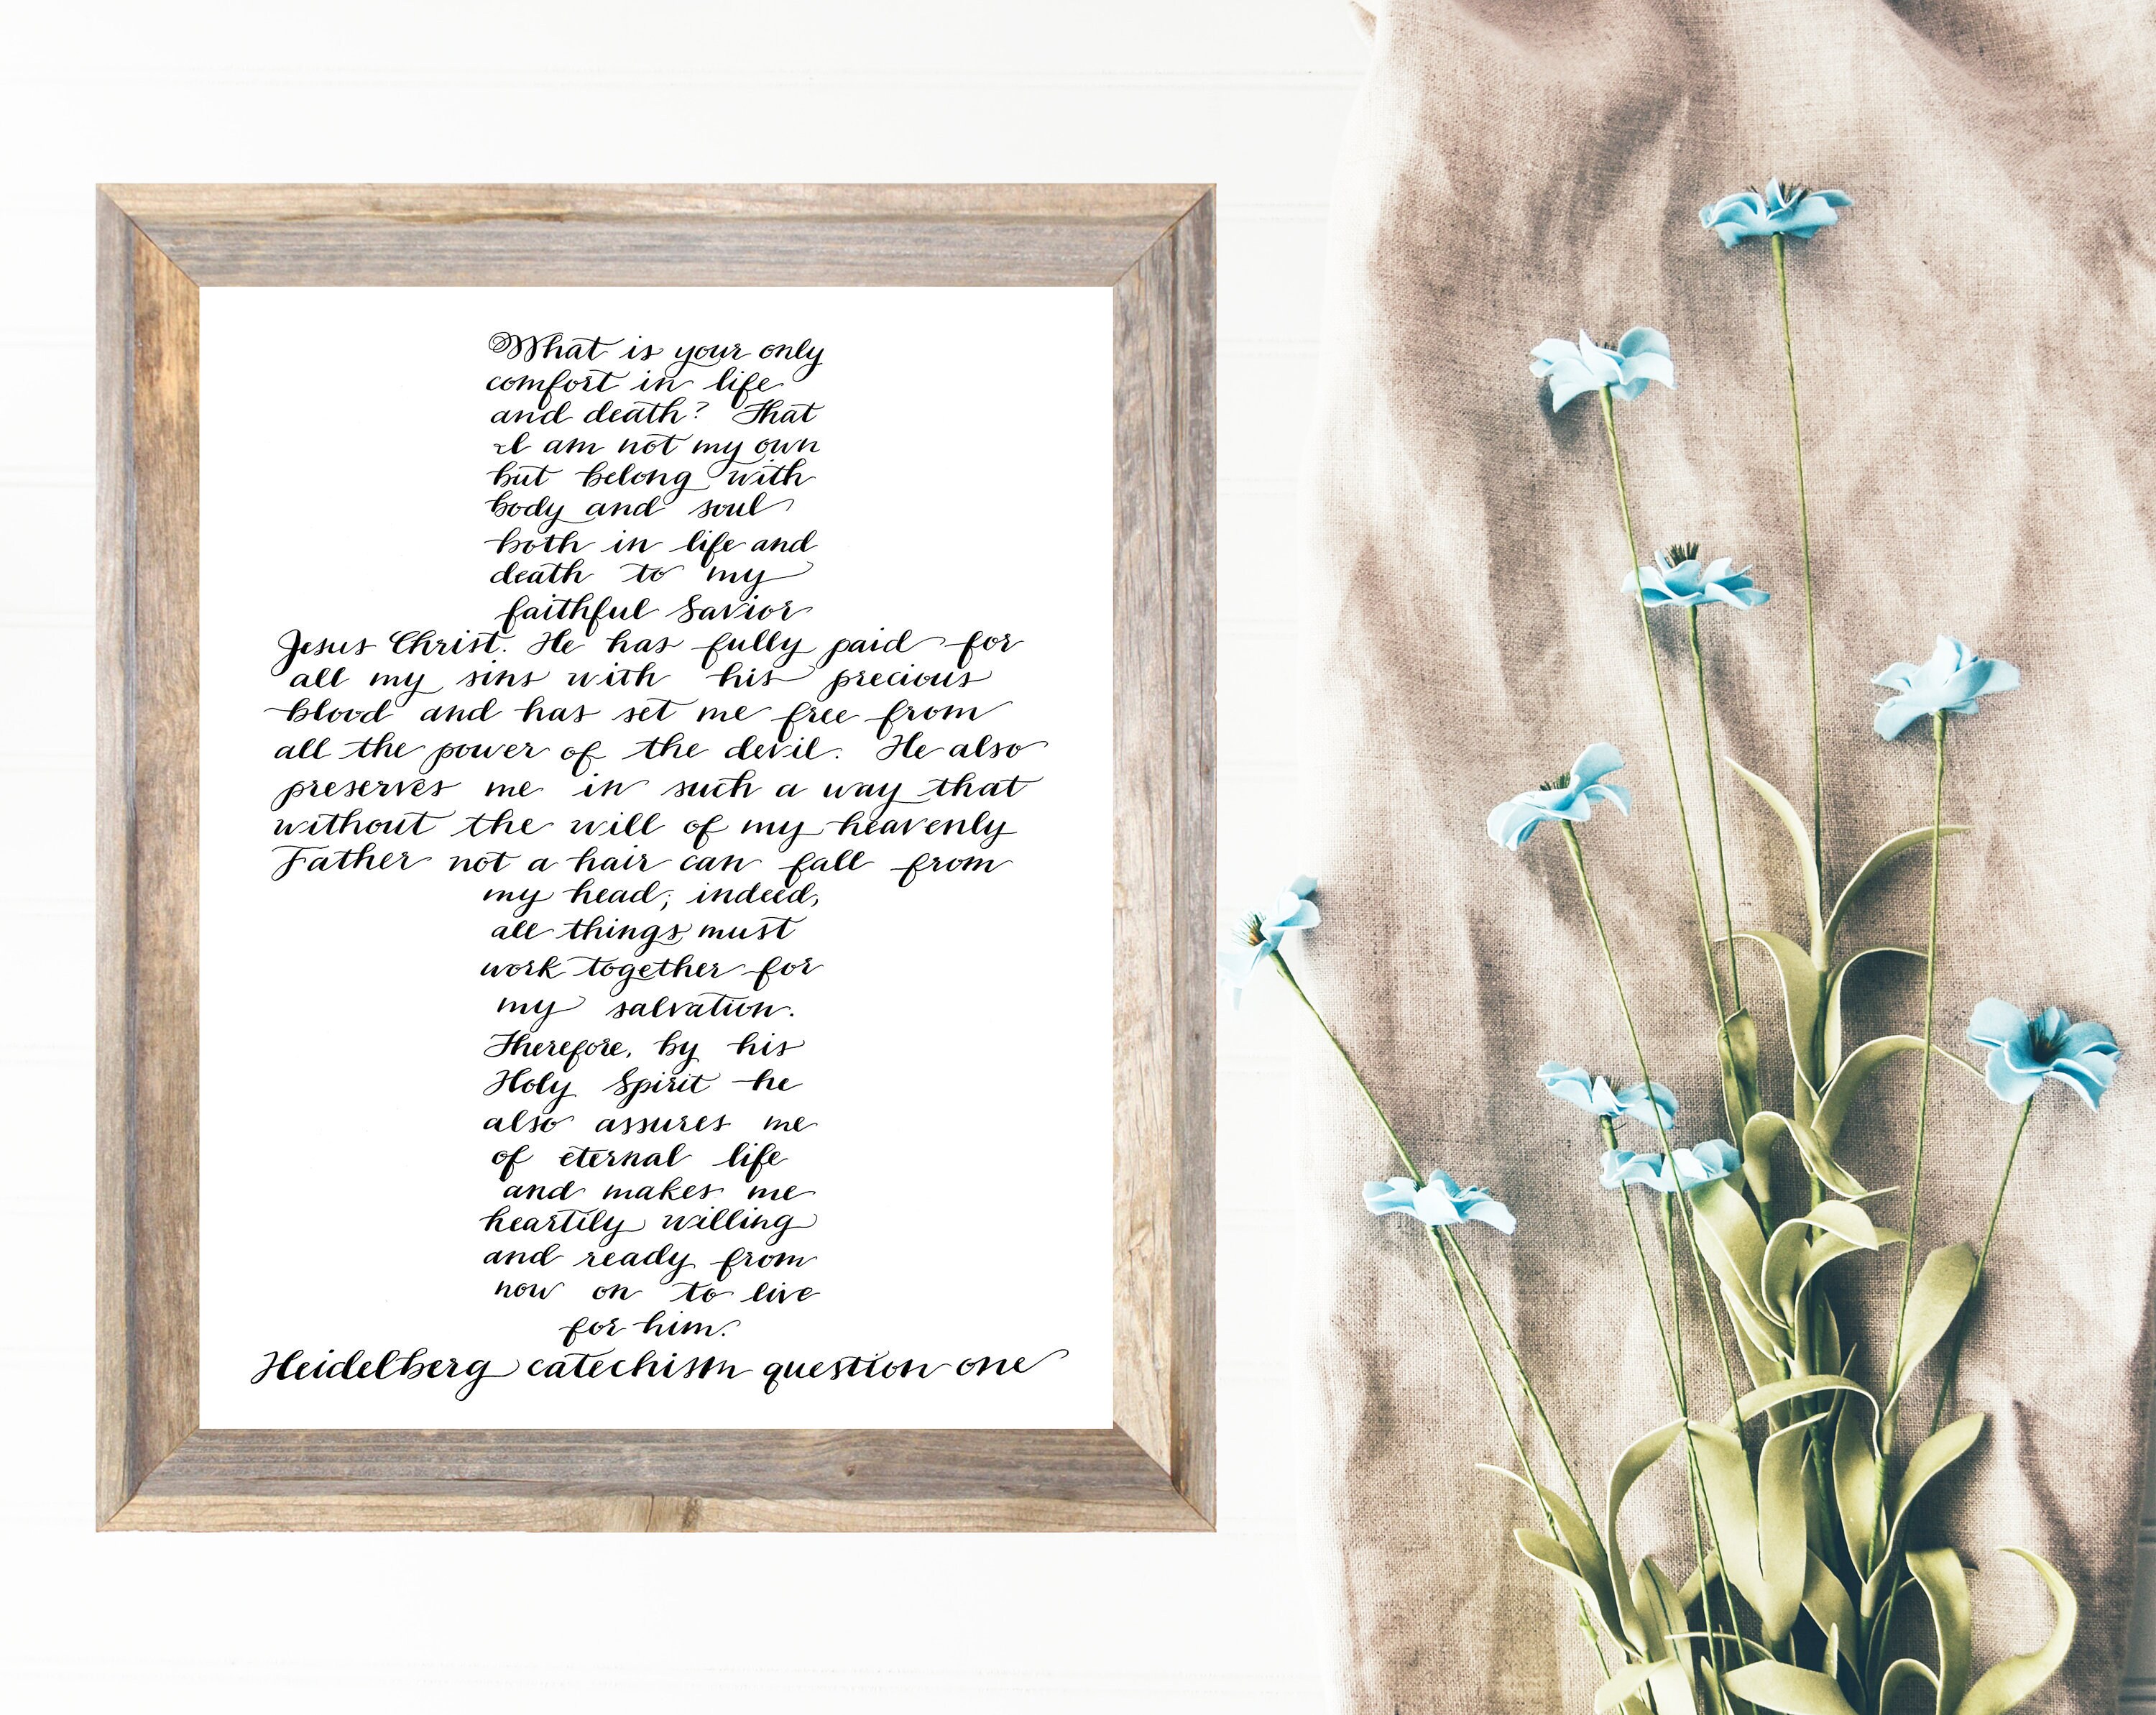 What is your only
comfort in life
and death? That
I am not my own
but belong with
body and soul
both in life and
death to my
faithful Savior
Jesus Christ. He has fully paid for
all my sins with his precious
blood and has set me free from
all the power of the devil. He also
preserves me in such a way that
without the will of my heavenly
Father not a hair can fall from
my head; indeed,
all things must
work together for
my salvation.
Therefore, by his
Holy Spirit he
also assures me
of eternal life
and makes me
heartily willing
and ready from
now on to live
for him.
Heidelberg catechism question one